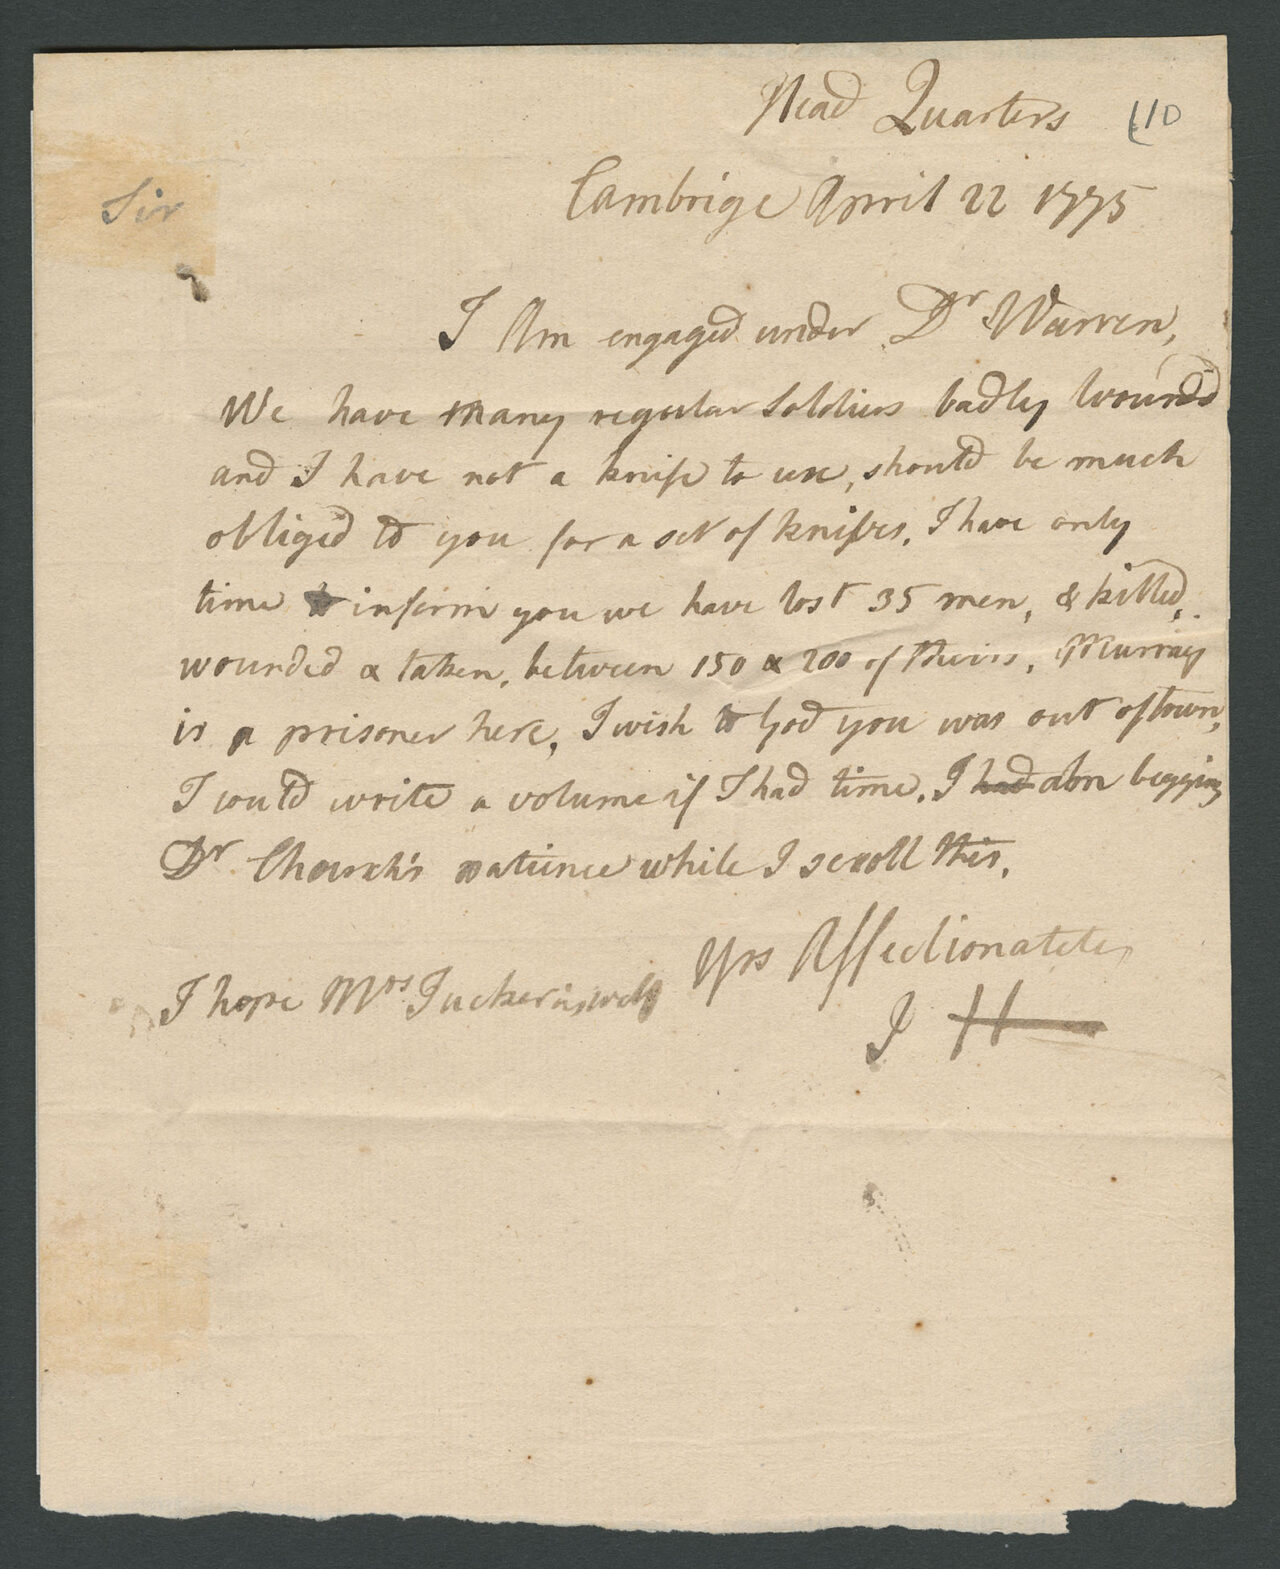 Head Quarters 110
Cambrige April 22 1775
Sir
I Am engaged under Dr Warren,
We have many regular Soldiers badly wound'd
and I have not a knife to use, should be much
obliged to you for a set of knifves, I have only
time to inform you we have lost 35 men, & killed,
wounded & taken, between 150 & 200 of theirs, Murray
is a prisoner here, I wish to God you was out of town,
I would write a volume if I had time, I had abn begging
Dr Church's patience while I scroll this,
Yrs Affectionately
I hope Mrs Tucker is well
J H